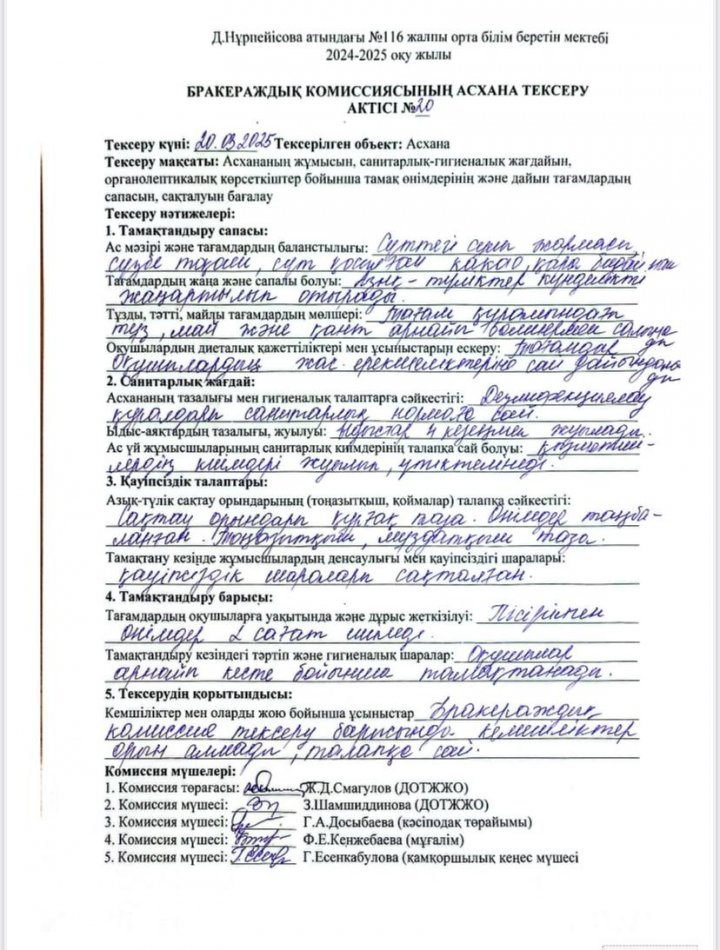 Д.Нұрпейісова атындағы №116 жалпы орта білім беретін мектебі
2024-2025 оқу жылы
БРАКЕРАЖДЫҚ КОМИССИЯСЫНЫҢ АСХАНА ТЕКСЕРУ
АКТІСІ №20
Тексеру күні: 20.03.2025 Тексерілген объект: Асхана
Тексеру мақсаты: Асхананың жұмысын, санитарлық-гигиеналық жағдайын,
органолептикалық көрсеткіштер бойынша тамақ өнімдерінің және дайын тағамдардың
сапасын, сақталуын бағалау
Тексеру нәтижелері:
1. Тамақтандыру сапасы:
Ас мәзірі және тағамдардың баланстылығы: Сүттегі арпа жармасы,
сүзбе тоқаш, сүт қосылған какао, қара бидай нан
Тағамдардың жаңа және сапалы болуы: Азық-түліктер күнделікті
жаңартылып отырады.
Тұзды, тәтті, майлы тағамдардың мөлшері: Тағам құрамындағы
тұз, май және қант арнайы салына
ды
Оқушылардың диеталық қажеттіліктері мен ұсыныстарын ескеру: Тағамдар
оқушылардың жас ерекшеліктеріне сай дайындала
ды
2. Санитарлық жағдай:
Асхананың тазалығы мен гигиеналық талаптарға сәйкестігі: Дезинфекциялау
құралдары санитарлық нормаға сай.
Ыдыс-аяқтардың тазалығы, жуылуы: Ыдыстар 4 кезеңмен жуылады.
Ас үй жұмысшыларының санитарлық киімдерінің талапқа сай болуы: қызметкер-
лердің киімдері жуылып, үтіктелінеді.
3. Қауіпсіздік талаптары:
Азық-түлік сақтау орындарының (тоңазытқыш, қоймалар) талапқа сәйкестігі:
Сақтау орындары құрғақ таза. Өнімдер таңба-
ланған. Тоңазытқыш, мұздатқыш таза.
Тамақтану кезінде жұмысшылардың денсаулығы мен қауіпсіздігі шаралары:
қауіпсіздік шаралары сақталған.
4. Тамақтандыру барысы:
Тағамдардың оқушыларға уақытында және дұрыс жеткізілуі: Пісірілген
өнімдер 2 сағат ішінде.
Тамақтандыру кезіндегі тәртіп және гигиеналық шаралар: Оқушылар
арнайы кесте бойынша тамақтанады.
5. Тексерудің қорытындысы:
Кемшіліктер мен оларды жою бойынша ұсыныстар Бракераждық
комиссия тексеру барысында кемшіліктер
орын алмады, талапқа сай.
Комиссия мүшелері:
1. Комиссия төрағасы: Ж.Д.Смагулов (ДОТЖЖО)
2. Комиссия мүшесі: З.Шамшиддинова (ДОТЖЖО)
3. Комиссия мүшесі: Г.А.Досыбаева (кәсіподақ төрайымы)
4. Комиссия мүшесі: Ф.Е.Кенжебаева (мұғалім)
5. Комиссия мүшесі: Г.Есенкабулова (қамқоршылық кеңес мүшесі